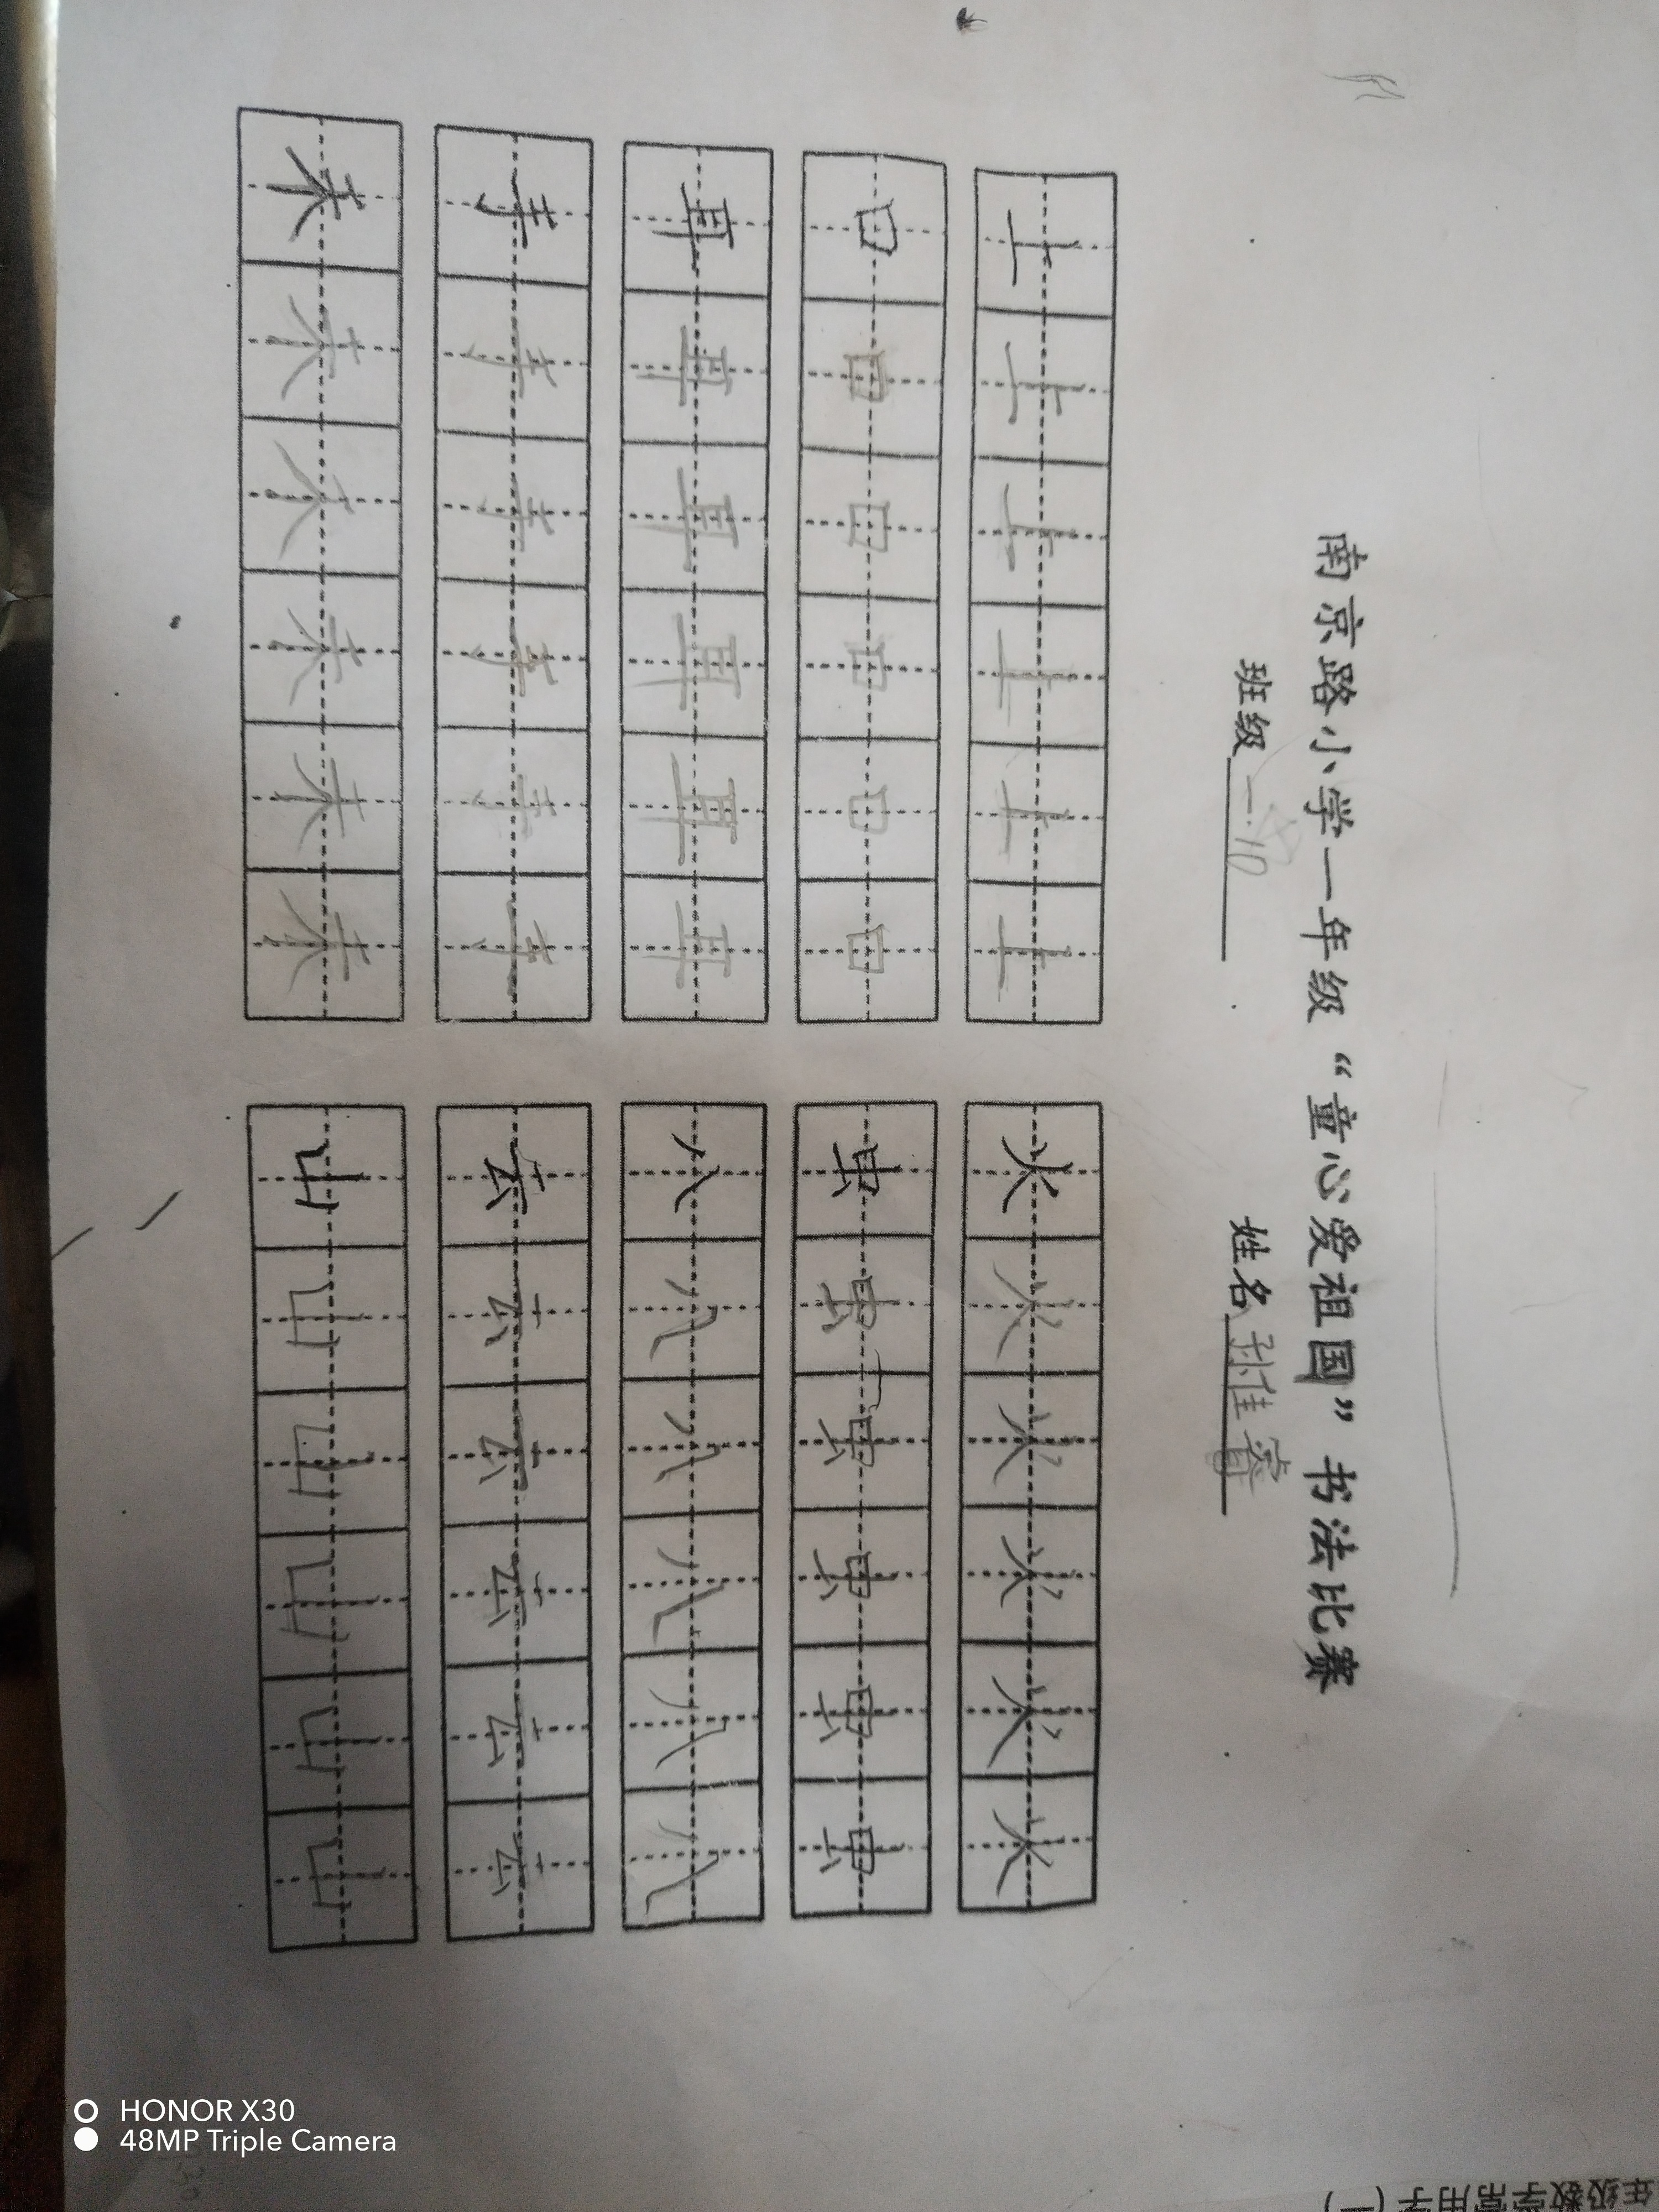 南京路小学一年级“童心爱祖国”书法比赛
班级 一.10 姓名 孙佳睿
土 土 土 土 土 土 火 火 火 火 火 火
口 口 口 口 口 口 虫 虫 虫 虫 虫 虫
耳 耳 耳 耳 耳 耳 八 八 八 八 八 八
手 手 手 手 手 手 云 云 云 云 云 云
木 木 木 木 木 木 山 山 山 山 山 山
年级数学常用字（一）
HONOR X30
48MP Triple Camera